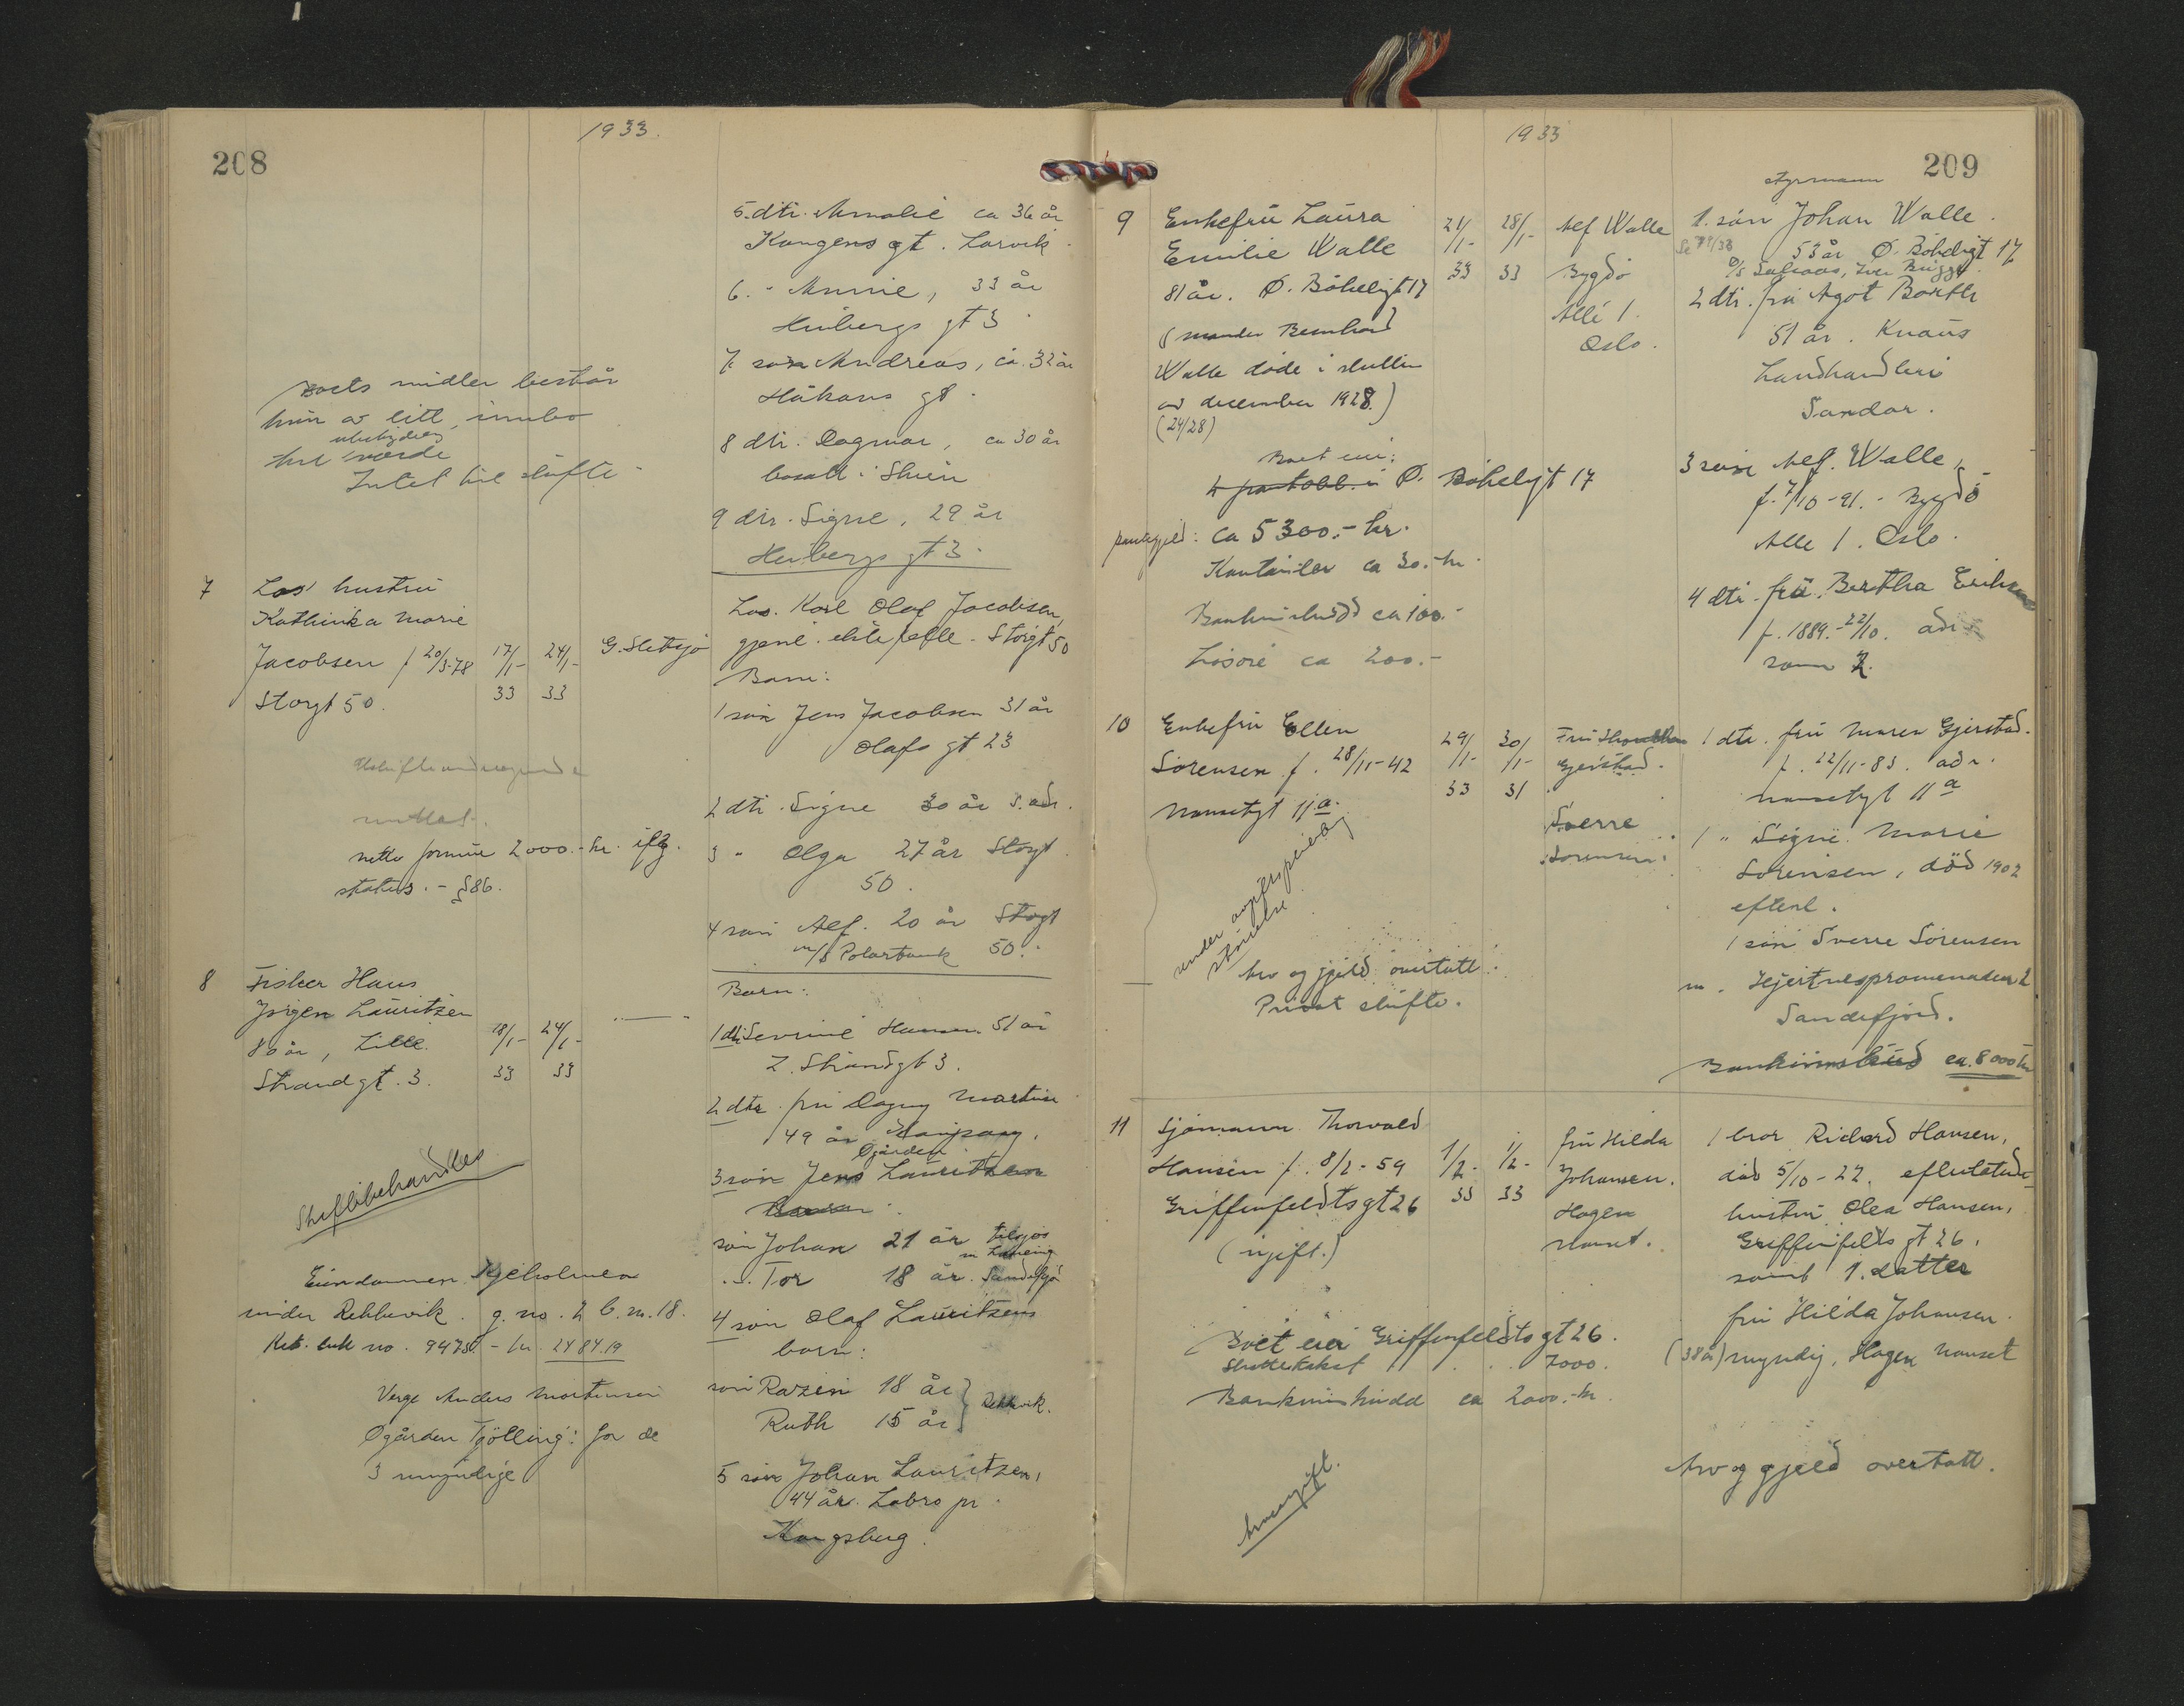 1933.
208
5. dtr. Amalie ca 36 år
Kongens gt. Larvik.
6. " Annie, 33 år
Heibergs gt 3.
7. søn Andreas, ca. 32 år
Håkons gt.
8 dtr. Dagmar, ca 30 år
bosatt i Skien
9 dtr. Signe, 29 år
Heibergs gt 3.
Boets midler består
kun av litt innbo
ubetydelig
verdi
Intet til skifte
7 Los' hustru
Kathinka Marie
Jacobsen f 20/3-78 17/1- 24/1- G. Sletsjø
Storgt 50. 33 33
Los. Karl Olaf Jacobsen,
gjenl. ektefelle. Storgt 50
Barn:
1 søn Jens Jacobsen 31 år
Olafs gt 23
2 dtr. Signe 30 år s. adr.
3 " Olga 27 år Storgt
50.
4 søn Alf. 20 år Storgt
m/s Polartank 50.
netto formue 2000.- kr. iflg.
status. - §86.
8 Fisker Hans
Jørgen Lauritzen
80 år, Lille 18/1- 24/1-
Strandgt. 3. 33 33
Barn:
1 dtr Sevrine Hansen 51 år
L. Strandgt 3.
2 dtr. fru Dagny Martine
49 år
Øgården
3 søn Jens Lauritzen
søn Johan 21 år tilsjøs
" Tor 18 år. Sandefjo
4 søn Olaf Lauritzens
barn:
søn 18 år
Ruth 15 år } Rekkevik.
5 søn Johan Lauritzen,
44 år. Labro pr.
Kongsberg.
Skiftebehandles
Eiendommen
under Rekkevik. g. no. 2 b. nr. 18.
no. 9475 - kr. 2484.19
Verge Anders Martinsen
Øgården Tjølling: for de
3 umyndige
1933
209
Styrmann
9 Enkefru Laura 21/1- 28/1- Alf Walle
Emilie Walle 33 33 Bygdø
81 år. Ø. Bøkeligt 17 Allé 1.
(mannen Bernhard Oslo.
Walle døde i slutten
av december 1928.)
(24/28)
1. søn Johan Walle.
53 år Ø. Bøkeligt 17
2 dtr. fru Agot
51 år. Knaus
Landhandleri
Sandar.
3 søn Alf. Walle,
f. 7/10-91. - Bygdø
Alle 1. Oslo.
4 dtr. fru. Bertha Eriksen
f. 1889. - 22/10. adr
som 2.
Boet eier:
Ø. Bøkeligt 17
pantegjeld: ca 5300.- kr.
Kontanter ca 30.- kr.
Bankinnskudd ca 100.-
Løsøre ca 200.-
10 Enkefru Ellen 29/1- 30/1- Fru
Sørensen f. 28/11-42 33 31 Gjerstad.
Nansetgt 11a. Sverre
Sørensen.
1 dtr. fru Maren Gjerstad.
f. 22/11-83. adr.
Nansetgt 11a
1 " Signe Marie
Sørensen, død 1902
efterl.
1 søn Sverre Sørensen
Hjertnespromenaden 2
Sandefjord.
Bankinnskud ca. 8000 kr
Arv og gjeld overtatt.
Privat skifte.
11 Sjømann Thorvald 1/2- 1/2- fru Hilda
Hansen f. 8/2-59 33 33 Johansen.
Griffenfeldtsgt 26 Hagen
(ugift.) Nanset.
1 bror Richard Hansen,
død 5/10-22, efterlatende
hustru Olea Hansen,
Griffenfelds gt 26.
samt 1. datter
fru Hilda Johansen.
(38 år) myndig, Hagen Nanset
Boet eier Griffenfeldtsgt 26.
Skattetakst . . . 7000.
Bankinnskudd ca 2000.- kr.
Arveavgift.
Arv og gjeld overtatt.